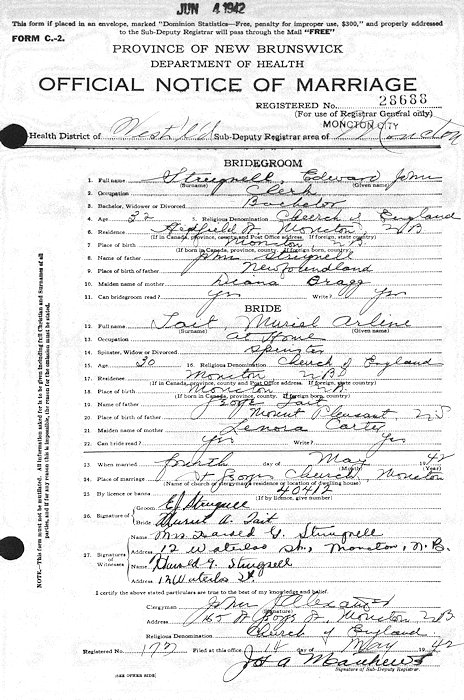 JUN 4 1942
This form if placed in an envelope, marked "Dominion Statistics—Free, penalty for improper use, $300," and properly addressed
to the Sub-Deputy Registrar will pass through the Mail "FREE"
FORM C.-2.
PROVINCE OF NEW BRUNSWICK
DEPARTMENT OF HEALTH
OFFICIAL NOTICE OF MARRIAGE
REGISTERED No. 28688
(For use of Registrar General only)
MONCTON CITY
Health District of West'l'd Sub-Deputy Registrar area of Moncton
BRIDEGROOM
1. Full name Strugnell, Edward John
(Surname) (Given name)
2. Occupation Clerk
3. Bachelor, Widower or Divorced Bachelor
4. Age 32 5. Religious Denomination Church of England
6. Residence St Moncton, NB
(If in Canada, province, county and Post Office address. If foreign, state country)
7. Place of birth Moncton NB
(If born in Canada, province, county. If foreign born, country)
8. Name of father John Strugnell
9. Place of birth of father Newfoundland
10. Maiden name of mother Diana Bragg
11. Can bridegroom read? Yes Write? Yes
BRIDE
12. Full name Tait Muriel Arline
(Surname) (Given name)
13. Occupation At Home
14. Spinster, Widow or Divorced Spinster
15. Age 30 16. Religious Denomination Church of England
17. Residence Moncton NB
(If in Canada, province, county and Post Office address. If foreign, state country)
18. Place of birth Moncton NB
(If born in Canada, province, county. If foreign born, country)
19. Name of father George Tait
20. Place of birth of father Mount Pleasant NS
21. Maiden name of mother Lenora Carter
22. Can bride read? Yes Write? Yes
23. When married fourth day of May 1942
(Month) (Year)
24. Place of marriage St Georges Church, Moncton
(Name of church or clergyman's residence or location of dwelling house)
25. By licence or banns 40412
(If by licence, give number)
26. Signature of
Groom EJ Strugnell
Bride Muriel A. Tait
27. Signature of Witnesses
Name Mrs. Harold G. Strugnell
Address 12 Waterloo St., Moncton, N.B.
Name Harold G. Strugnell
Address 12 Waterloo St.
I certify the above stated particulars are true to the best of my knowledge and belief.
Clergyman John
(Signature)
Address St Moncton NB
Religious Denomination Church of England
Registered No. 177 Filed at this office 14 day of May 1942
Signature of Sub-Deputy Registrar.
(SEE OTHER SIDE)
NOTE.—This form must not be mutilated. All information asked for is to be given including full Christian and Surnames of all
parties, and if for any reason this is impossible, the reason for the omission must be stated.